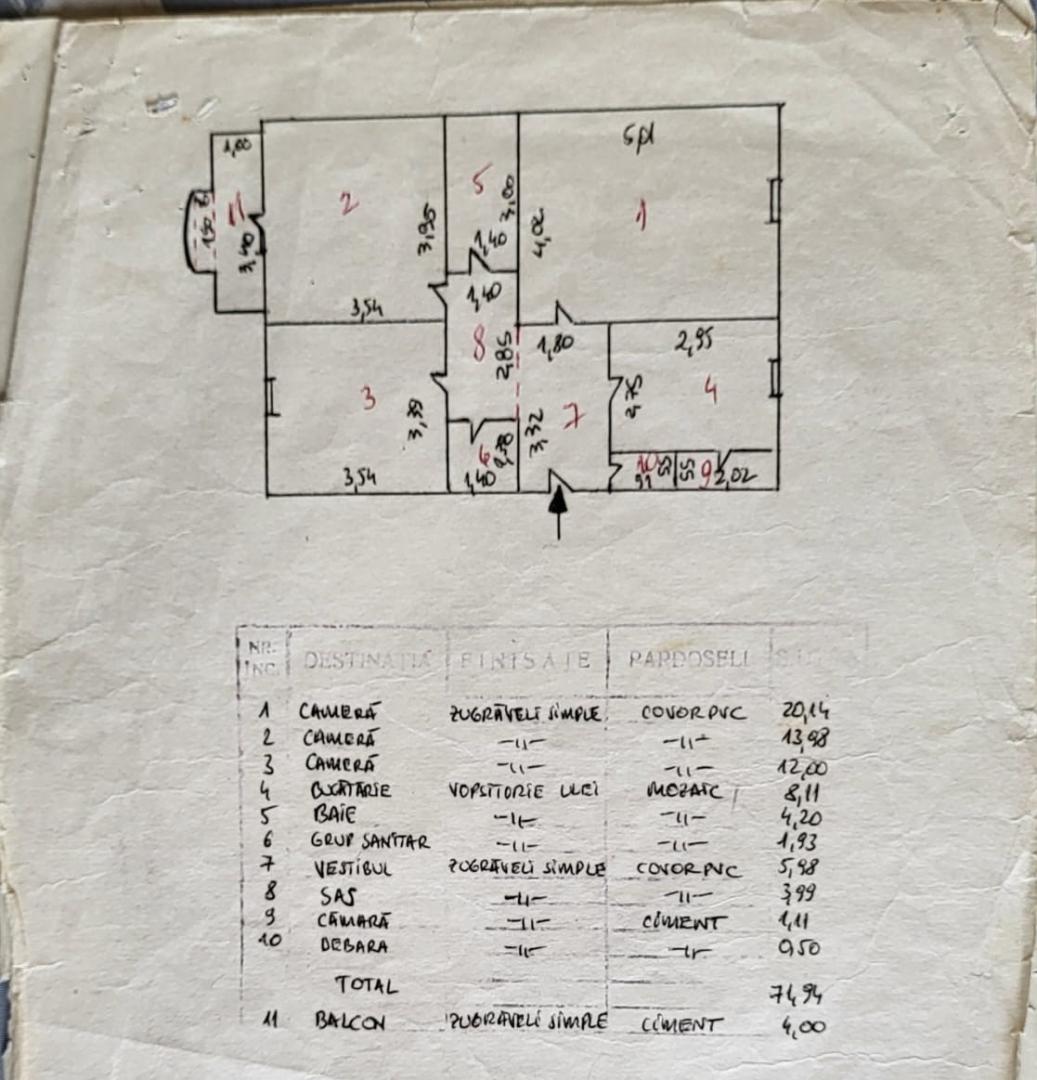 1,00
5pl
2
5
3,00
1
11
1,50
3,40
3,95
1,40
4,02
3,54
1,40
8
2,85
1,80
2,95
3
3,39
7
2,75
4
3,32
6
1,38
10
55
55
9
2,02
3,54
1,40
91
NR. INC. DESTINAȚIA FINISAJE PARDOSELI
1 CAMERĂ ZUGRĂVELI SIMPLE COVOR PVC 20,14
2 CAMERĂ -〃- -〃- 13,98
3 CAMERĂ -〃- -〃- 12,00
4 BUCĂTĂRIE VOPSITORIE ULEI MOZAIC 8,11
5 BAIE -〃- -〃- 4,20
6 GRUP SANITAR -〃- -〃- 1,93
7 VESTIBUL ZUGRĂVELI SIMPLE COVOR PVC 5,98
8 SAS -〃- -〃- 3,99
9 CĂMARĂ -〃- CIMENT 1,11
10 DEBARA -〃- -〃- 0,50
TOTAL 71,94
11 BALCON ZUGRĂVELI SIMPLE CIMENT 4,00